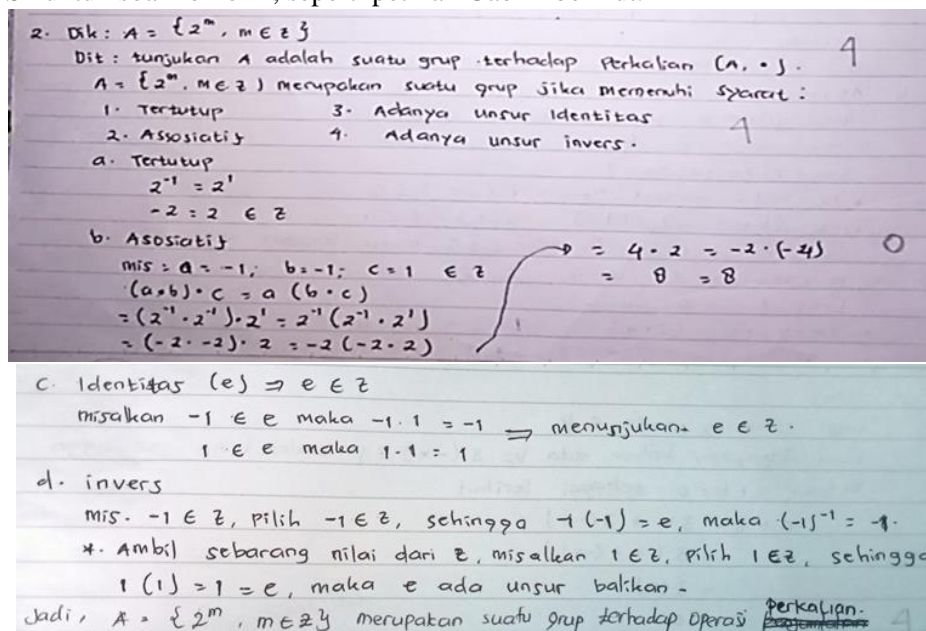 2. Dik : A = {2^m, m ∈ z}
Dit : tunjukan A adalah suatu grup terhadap Perkalian (A, •).
4
A = {2^m, m ∈ z) merupakan suatu grup jika memenuhi syarat :
1. Tertutup 3. Adanya unsur Identitas
2. Assosiatif 4. Adanya unsur invers.
4
a. Tertutup
2^-1 = 2^1
-2 = 2 ∈ z
b. Asosiatif
mis : a = -1; b = -1; c = 1 ∈ z
(a•b) • c = a (b • c)
= (2^-1 • 2^-1) • 2^1 = 2^-1 (2^-1 • 2^1)
= (-2 • -2) • 2 = -2 (-2 • 2)
= 4 • 2 = -2 • (-4)
= 8 = 8
0
c. Identitas (e) ⇒ e ∈ z
misalkan -1 ∈ e maka -1 . 1 = -1 ⇒ menunjukan e ∈ z.
1 ∈ e maka 1 . 1 = 1
d. invers
mis. -1 ∈ z, pilih -1 ∈ z, sehingga -1 (-1) = e, maka (-1)^-1 = -1.
*. Ambil sebarang nilai dari z, misalkan 1 ∈ z, pilih 1 ∈ z, sehingga
1 (1) = 1 = e, maka e ada unsur balikan.
Jadi, A = {2^m, m ∈ z} merupakan suatu grup terhadap operasi perkalian.
4